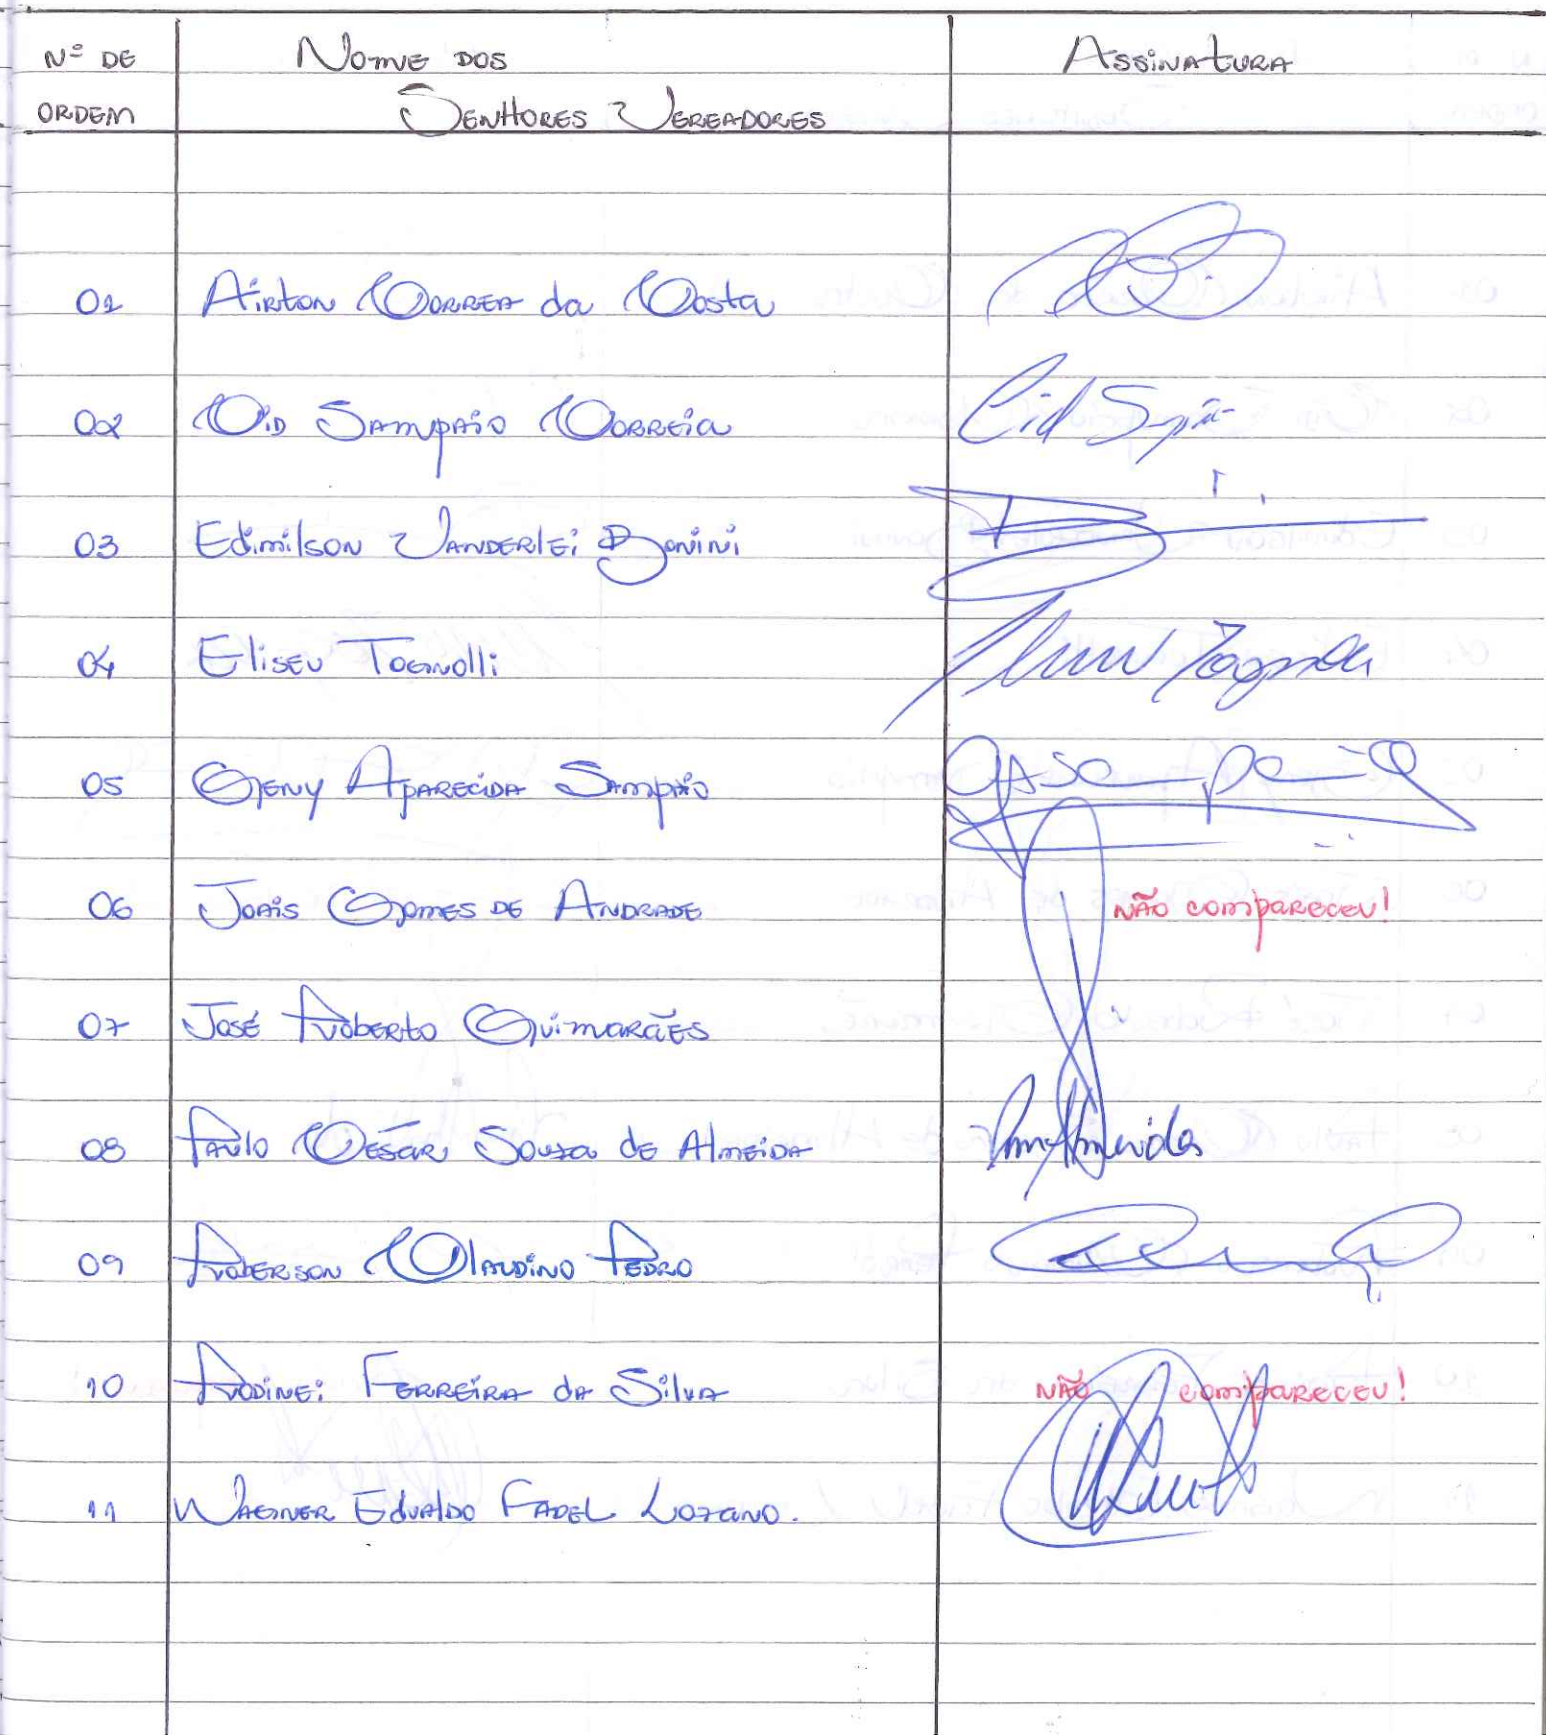 Nº DE Nome dos Assinatura
ORDEM Senhores Vereadores
01 Airton Correa da Costa
02 Cid Sampaio Correia Cid
03 Edimilson Vanderlei Bonini
04 Eliseu Tognolli
05 Geny Aparecida Sampaio
06 Joais Gomes de Andrade Não compareceu!
07 José Roberto Guimarães
08 Paulo César Souza de Almeida Almeida
09 Roberson Claudino Pedro
10 Rodinei Ferreira da Silva Não compareceu!
11 Wagner Edvaldo Fadel Lozano.